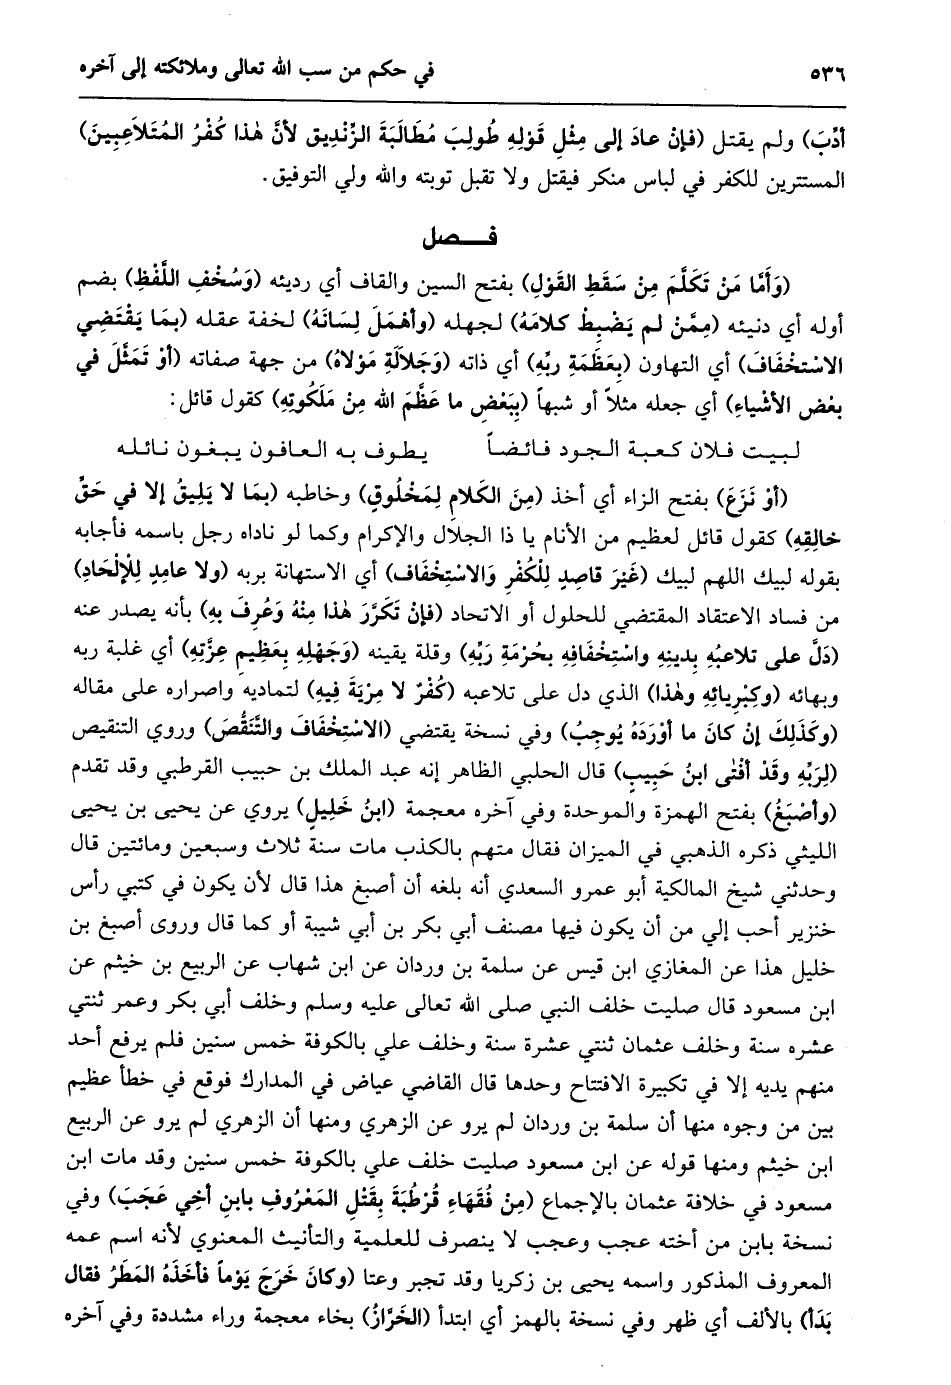 ٥٣٦ في حكم من سب الله تعالى وملائكته إلى آخره
أُدِّبَ) ولم يقتل (فإنْ عادَ إلى مِثْلِ قَوْلِهِ طُولِبَ مُطَالَبَةَ الزِّنْدِيقِ لأنَّ هٰذا كُفْرُ المُتَلاَعِبِينَ)
المستترين للكفر في لباس منكر فيقتل ولا تقبل توبته والله ولي التوفيق.
فـــصل
(وَأَمَّا مَنْ تَكَلَّمَ مِنْ سَقَطِ القَوْلِ) بفتح السين والقاف أي رديئه (وَسُخْفِ اللَّفْظِ) بضم
أوله أي دنيئه (مِمَّنْ لم يَضْبِطْ كلامَهُ) لجهله (وأهْمَلَ لِسَانَهُ) لخفة عقله (بمَا يَقْتَضِي
الاسْتِخْفَافَ) أي التهاون (بِعَظَمَةِ ربِّهِ) أي ذاته (وَجَلاَلَةِ مَوْلاَهُ) من جهة صفاته (أوْ تَمَثَّلَ في
بعْضِ الأشْياءِ) أي جعله مثلاً أو شبهاً (بِبَعْضِ ما عَظَّمَ الله مِنْ مَلَكُوتِهِ) كقول قائل:
لبيت فلان كعبة الجود فائضاً يطوف به العافون يبغون نائله
(أوْ نَزَعَ) بفتح الزاء أي أخذ (مِنَ الكَلامِ لِمَخْلُوقٍ) وخاطبه (بمَا لا يَلِيقُ إلا في حَقِّ
خالِقِهِ) كقول قائل لعظيم من الأنام يا ذا الجلال والإكرام وكما لو ناداه رجل باسمه فأجابه
بقوله لبيك اللهم لبيك (غَيْرَ قاصِدٍ لِلْكُفْرِ وَالاسْتِخْفَاف) أي الاستهانة بربه (ولا عامِدٍ لِلْإلْحَادِ)
من فساد الاعتقاد المقتضي للحلول أو الاتحاد (فإنْ تَكَرَّرَ هٰذا مِنْهُ وَعُرِفَ بهِ) بأنه يصدر عنه
(دَلَّ على تلاعبُهِ بِدينِهِ واسْتِخْفَافِهِ بحُرْمَةِ رَبِّهِ) وقلة يقينه (وَجَهْلِهِ بِعَظِيمِ عِزَّتِهِ) أي غلبة ربه
وبهائه (وكِبْرِيائِهِ وهٰذا) الذي دل على تلاعبه (كُفْرٌ لا مِرْيَةَ فِيهِ) لتماديه واصراره على مقاله
(وكَذَلِكَ إنْ كانَ ما أوْرَدَهُ يُوجِبُ) وفي نسخة يقتضي (الاسْتِخْفَافَ والتَّنَقُّصَ) وروي التنقيص
(لِرَبِّهِ وقَدْ أفْتَى ابنُ حَبِيبٍ) قال الحلبي الظاهر إنه عبد الملك بن حبيب القرطبي وقد تقدم
(وأصْبَغُ) بفتح الهمزة والموحدة وفي آخره معجمة (ابنُ خَلِيلٍ) يروي عن يحيى بن يحيى
الليثي ذكره الذهبي في الميزان فقال متهم بالكذب مات سنة ثلاث وسبعين ومائتين قال
وحدثني شيخ المالكية أبو عمرو السعدي أنه بلغه أن أصبغ هذا قال لأن يكون في كتبي رأس
خنزير أحب إلي من أن يكون فيها مصنف أبي بكر بن أبي شيبة أو كما قال وروى أصبغ بن
خليل هذا عن المغازي ابن قيس عن سلمة بن وردان عن ابن شهاب عن الربيع بن خيثم عن
ابن مسعود قال صليت خلف النبي صلى الله تعالى عليه وسلم وخلف أبي بكر وعمر ثنتي
عشره سنة وخلف عثمان ثنتي عشرة سنة وخلف علي بالكوفة خمس سنين فلم يرفع أحد
منهم يديه إلا في تكبيرة الافتتاح وحدها قال القاضي عياض في المدارك فوقع في خطأ عظيم
بين من وجوه منها أن سلمة بن وردان لم يرو عن الزهري ومنها أن الزهري لم يرو عن الربيع
ابن خيثم ومنها قوله عن ابن مسعود صليت خلف علي بالكوفة خمس سنين وقد مات ابن
مسعود في خلافة عثمان بالإجماع (مِنْ فُقَهَاءِ قُرْطُبَةَ بِقَتْلِ المَعْرُوفِ بابنِ أخِي عَجَبَ) وفي
نسخة بابن من أخته عجب وعجب لا ينصرف للعلمية والتأنيث المعنوي لأنه اسم عمه
المعروف المذكور واسمه يحيى بن زكريا وقد تجبر وعتا (وكانَ خَرَجَ يَوْماً فأخَذَهُ المَطَرُ فقال
بَدَأ) بالألف أي ظهر وفي نسخة بالهمز أي ابتدأ (الخَرَّازُ) بخاء معجمة وراء مشددة وفي آخره